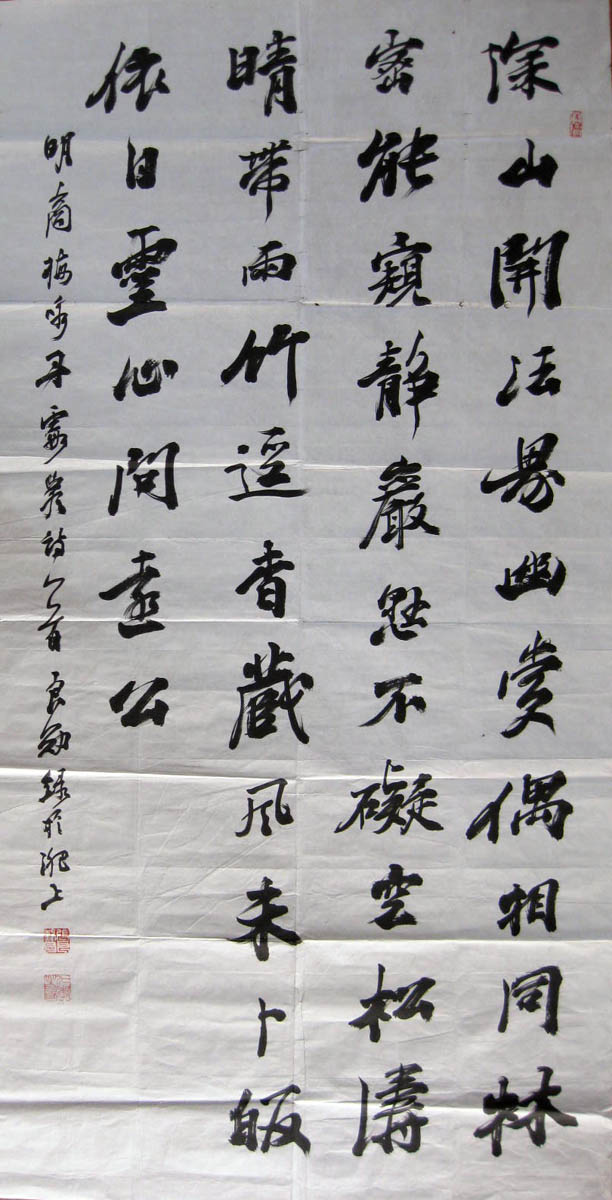 深山開法界幽賞偶相同林
密能窺静巖悬不礙空松濤
晴帶雨竹逕香藏風未卜皈
依日靈心問遠公
明商梅丹霞巖詩一首良勛録於淝上